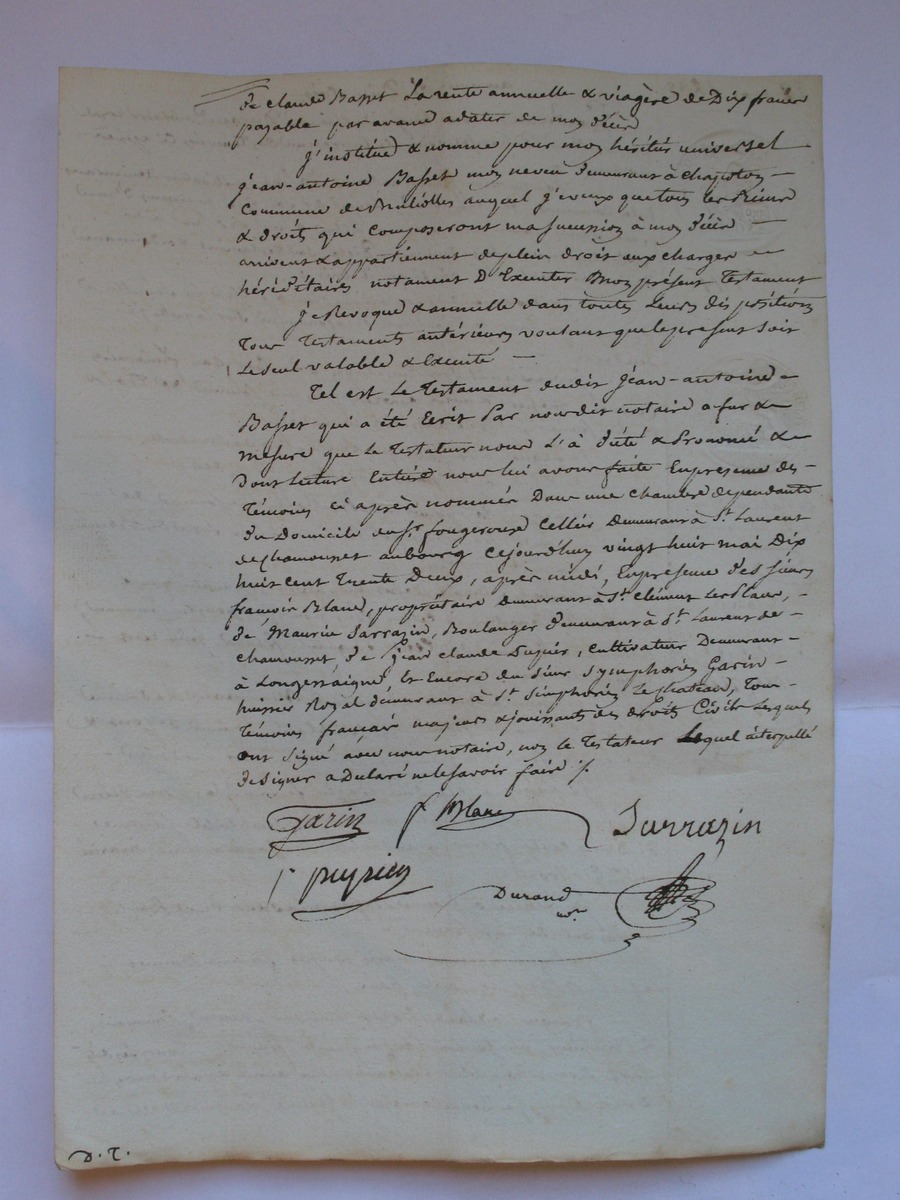 de claude Basset La rente annuelle & viagère de Dix francs
payable par avance a dater de mon décès
j'institue & nomme pour mon héritier universel
jean-antoine Basset mon neveu demeurant à chapoton
Commune de Brullioles auquel je veux que tous les Biens
& droits qui composeront ma succession à mon décès
arrivent & appartiennent de plein droit aux charges
héréditaires notament D'Executer Mon présent Testament
je Revoque & annulle dans toutes Leurs dispositions
Tous Testaments antérieurs voulant que le present soit
Le seul valable & Executé
Tel est Le Testament dudit jean-antoine
Basset qui a été Ecrit Par nous dit notaire a fur &
mesure que Le Testateur nous L'à dicté & Prononcé &
Dont Lecture Entière nous lui avons faite En presence des
Témoins Ci après nommés Dans une chambre dependante
du Domicile du Sr. fougerouse Cellier Demeurant à St. Laurent
de chamousset au bourg Cejourd'huy vingt huit mai Dix
huit cent Trente Deux, après midi, En presence des Sieurs
françois Blanc, propriétaire Demeurant à St. Clément Les Places,
de Maurice Sarrazin, Boulanger demeurant à St. Laurent de
chamousset, de jean claude Cultivateur Demeurant
à Longessaigne, Et Encore du Sieur Symphorien Garin
hussier Royal demeurant à St. Simphorien Le chateau, Tous
Témoins français majeurs & jouissants des droits Civils Lesquels
ont signé avec nous notaire, non Le Testateur Lequel interpellé
de signer a Déclaré ne le savoir faire ./.
Garin f Blanc Sarrazin
Durand nre
D. T.